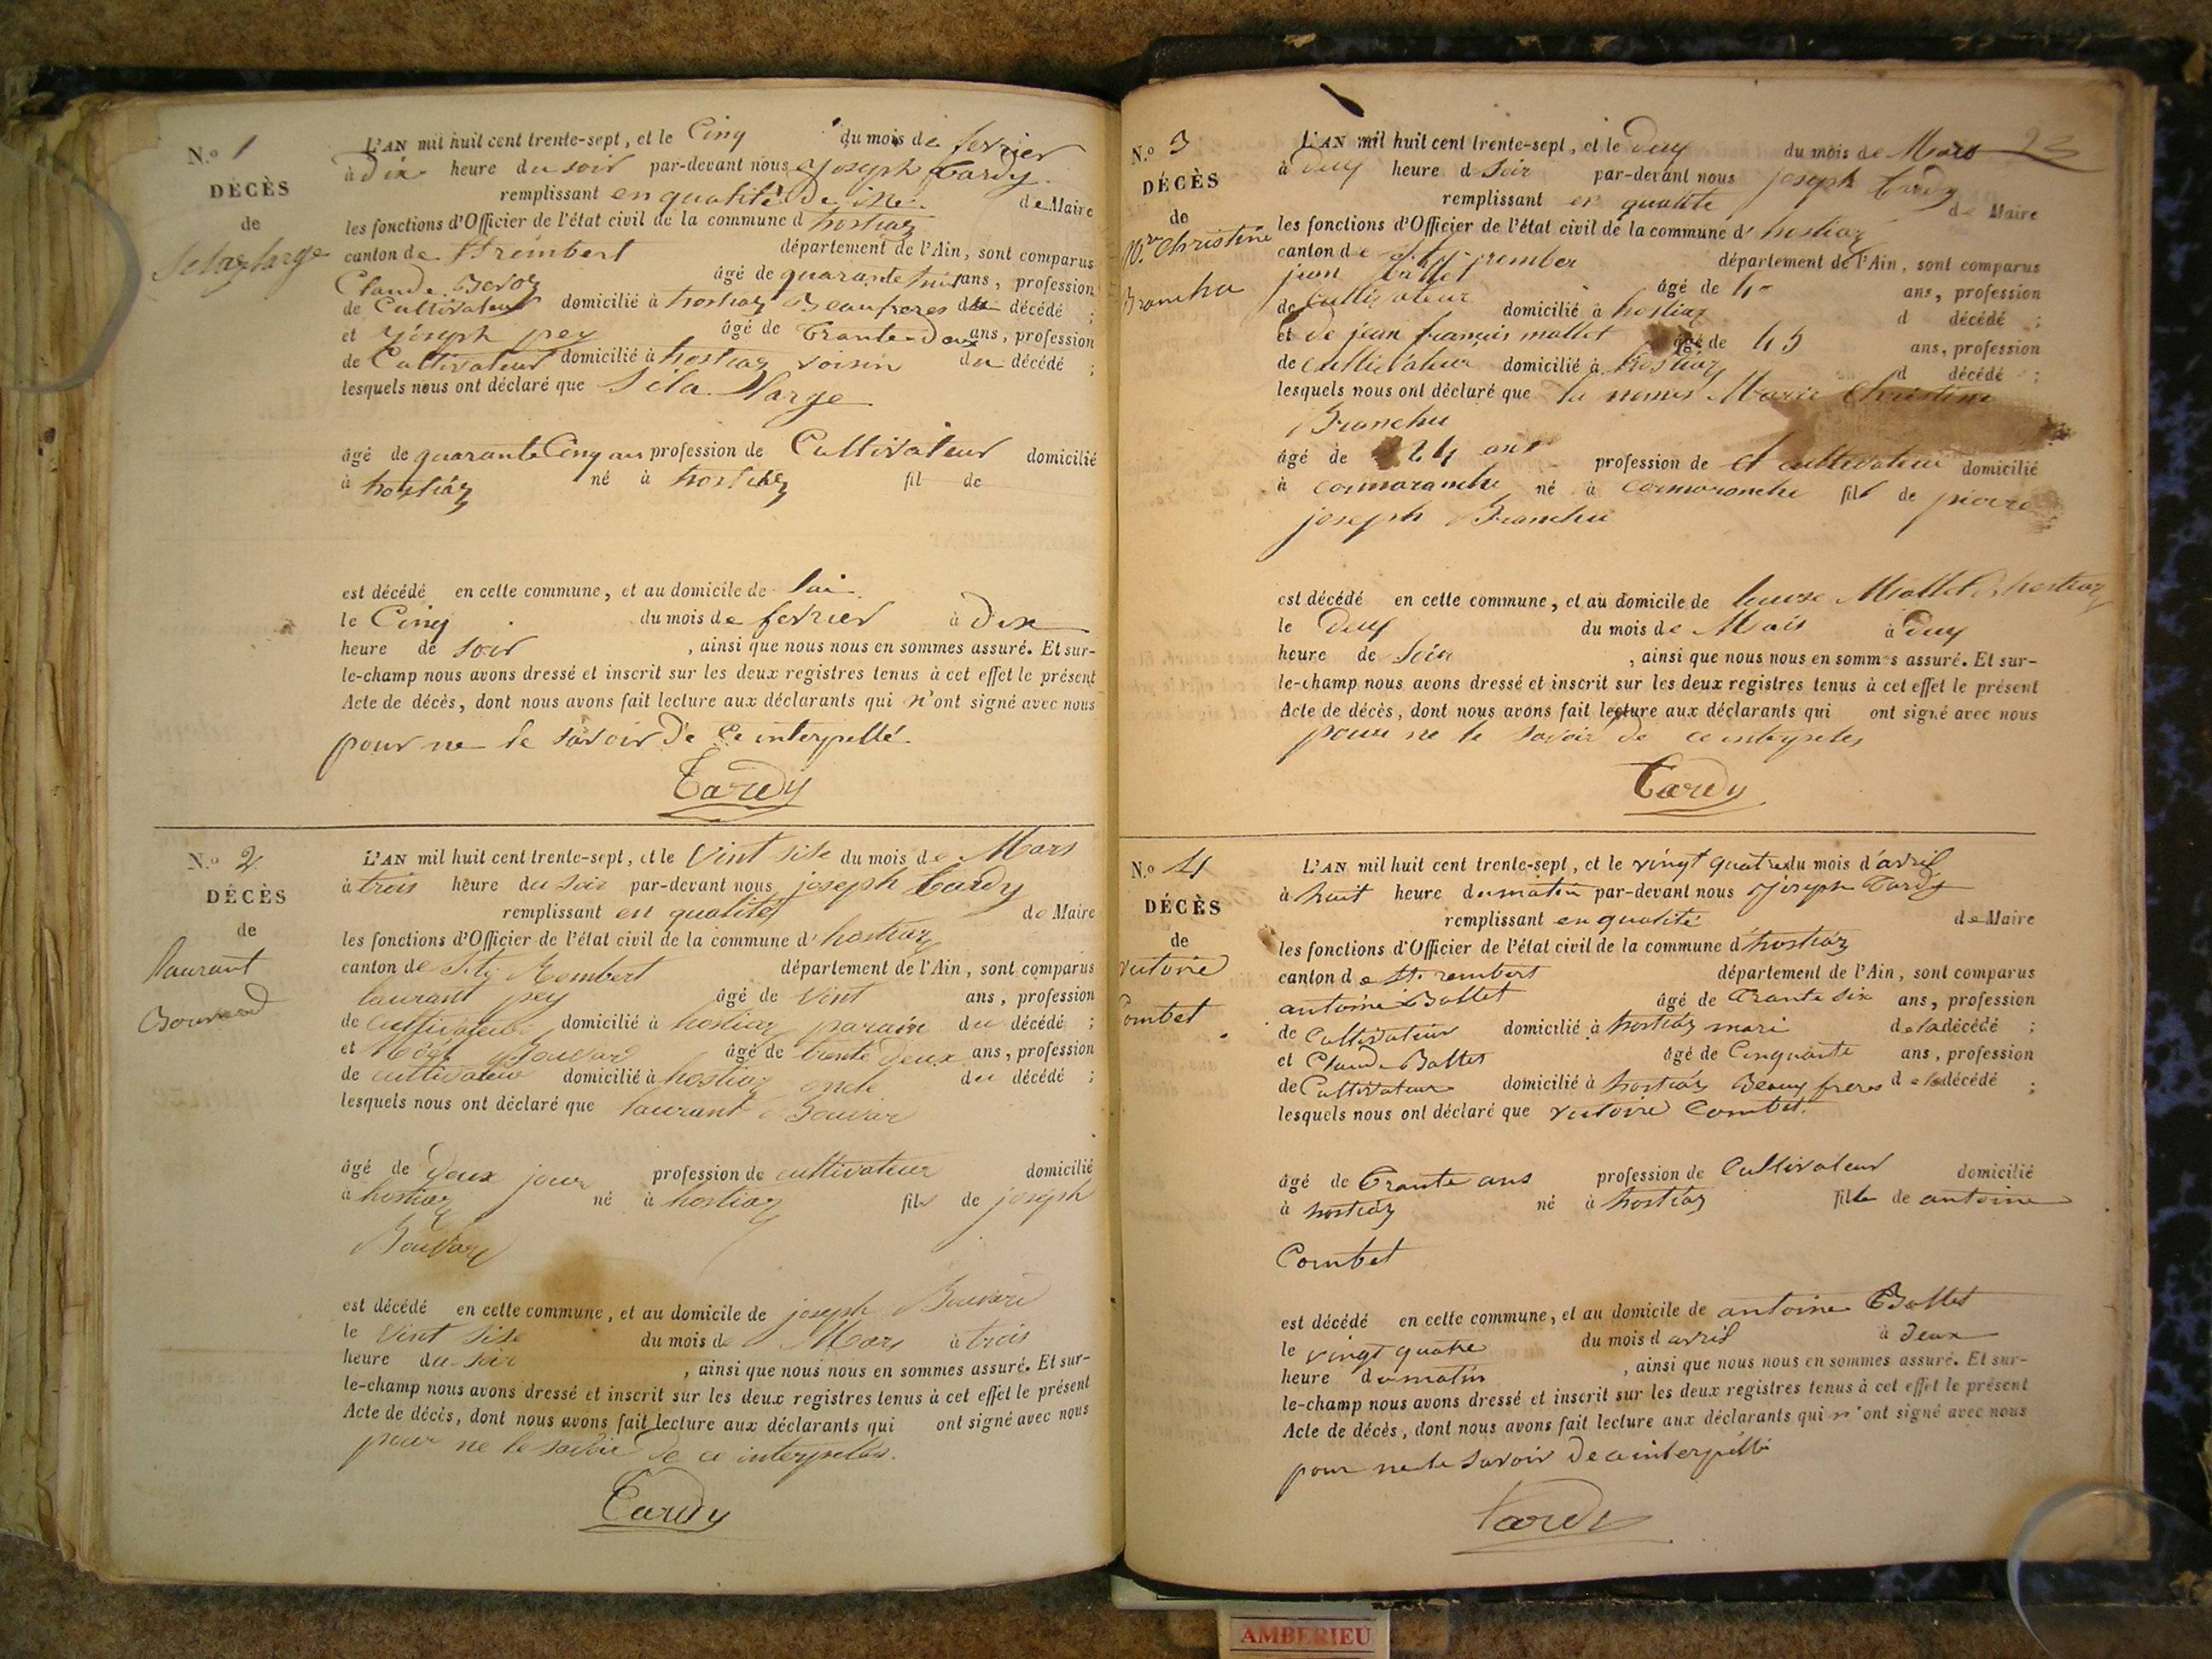 N.o 1
DÉCÈS
de
L'AN mil huit cent trente-sept, et le Cinq du mois de fevrier
à Dix heure du soir par-devant nous joseph Tardy
remplissant en qualité de Maire
les fonctions d'Officier de l'état civil de la commune d hostiaz
canton de St rembert département de l'Ain, sont comparus
Claude âgé de quarante huit ans, profession
de Cultivateur domicilié à hostiaz Beaufreres du décédé ;
et joseph pey âgé de Trante Deux ans, profession
de Cultivateur domicilié à hostiaz voisin du décédé ;
lesquels nous ont déclaré que
âgé de quarante Cinq ans profession de Cultivateur domicilié
à hostiaz né à hostiaz fil de
est décédé en cette commune, et au domicile de lui
le Cinq du mois de fevrier à Dix
heure de soir , ainsi que nous nous en sommes assuré. Et sur-
le-champ nous avons dressé et inscrit sur les deux registres tenus à cet effet le présent
Acte de décès, dont nous avons fait lecture aux déclarants qui n'ont signé avec nous
pour ne le savoir de Ce interpellé
Tardy
N.o 2
DÉCÈS
de
laurant
Bouvard
L'AN mil huit cent trente-sept, et le Vint sise du mois de Mars
à trois heure du soir par-devant nous joseph Tardy
remplissant en qualité de Maire
les fonctions d'Officier de l'état civil de la commune d' hostiaz
canton de St Rembert département de l'Ain, sont comparus
laurant pey âgé de Vint ans, profession
de cultivateur domicilié à hostiaz parain du décédé ;
et Bouvar âgé de trante deux ans, profession
de cultivateur domicilié à hostiaz oncle du décédé ;
lesquels nous ont déclaré que laurant Bouvar
âgé de deux jour profession de cultivateur domicilié
à hostiaz né à hostiaz fils de joseph
Bouvar
est décédé en cette commune, et au domicile de joseph Bouvard
le Vint sise du mois de Mars à trois
heure du soir , ainsi que nous nous en sommes assuré. Et sur-
le-champ nous avons dressé et inscrit sur les deux registres tenus à cet effet le présent
Acte de décès, dont nous avons fait lecture aux déclarants qui ont signé avec nous
pour ne le savoir de ce interpelés
Tardy
N.o 3
DÉCÈS
de
M.rie Christine
Branchu
L'AN mil huit cent trente-sept, et le Deux du mois de Mars 23
à Deux heure d soir par-devant nous joseph Tardy
remplissant en qualité de Maire
les fonctions d'Officier de l'état civil de la commune d' hostiaz
canton de département de l'Ain, sont comparus
jean âgé de 40 ans, profession
de Cultivateur domicilié à hostiaz d décédé ;
et de jean françois mallet âgé de 45 ans, profession
de cultivateur domicilié à hostiaz d décédé ;
lesquels nous ont déclaré que la nomes Marie Christine
Branchu
âgé de 24 ans profession de et cultivateur domicilié
à cormaranche né à cormaronche fils de pierre
joseph Branchu
est décédé en cette commune, et au domicile de Mallet hostiaz
le Deux du mois de Mars à Deux
heure de soir , ainsi que nous nous en sommes assuré. Et sur-
le-champ nous avons dressé et inscrit sur les deux registres tenus à cet effet le présent
Acte de décès, dont nous avons fait lecture aux déclarants qui ont signé avec nous
pour ne le savoir de ce interpelés
Tardy
N.o 4
DÉCÈS
de
victoire
Combet
L'AN mil huit cent trente-sept, et le vingt quatre du mois d'avril
à huit heure du matin par-devant nous joseph Tardy
remplissant en qualité de Maire
les fonctions d'Officier de l'état civil de la commune d'hostiaz
canton de St. rembert département de l'Ain, sont comparus
antoine Ballet âgé de Trante six ans, profession
de Cultivateur domicilié à hostiaz mari de la décédé ;
et Claude Ballet âgé de Cinquante ans, profession
de Cultivateur domicilié à hostiaz Beaux freres de la décédé ;
lesquels nous ont déclaré que victoire Combet
âgé de Trante ans profession de Cultivateur domicilié
à hostiaz né à hostiaz fille de antoine
Combet
est décédé en cette commune, et au domicile de antoine Ballet
le vingt quatre du mois d avril à deux
heure du matin , ainsi que nous nous en sommes assuré. Et sur-
le-champ nous avons dressé et inscrit sur les deux registres tenus à cet effet le présent
Acte de décès, dont nous avons fait lecture aux déclarants qui n'ont signé avec nous
pour ne le savoir de ce interpellé
Tardy
AMBERIEU